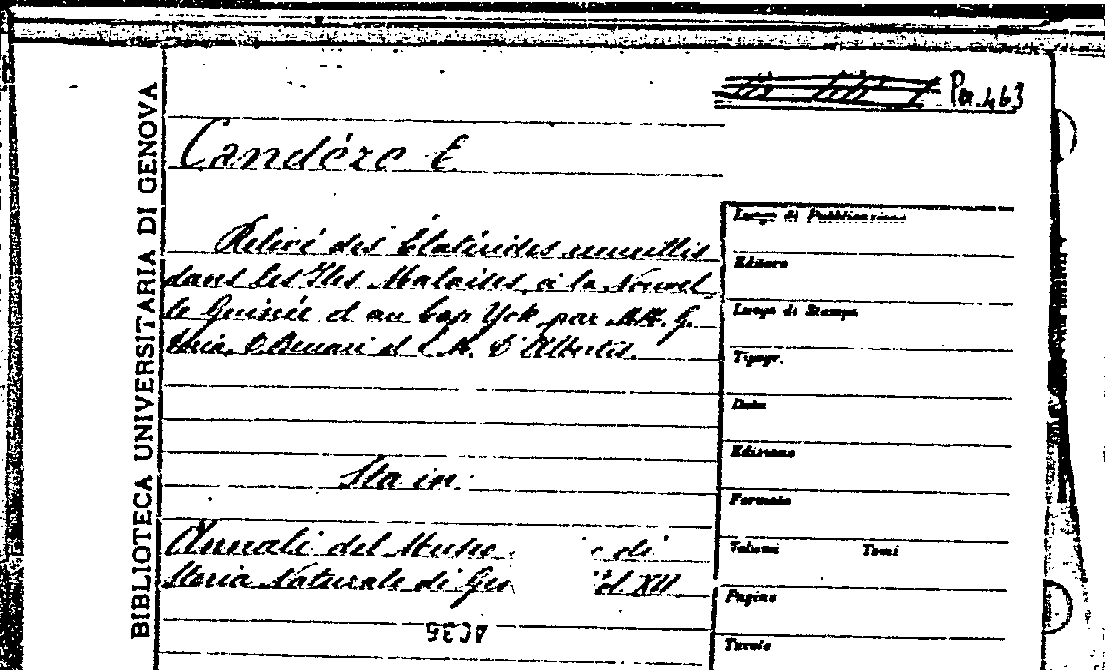 BIBLIOTECA UNIVERSITARIA DI GENOVA
Pa. 463
Candéze E.
Relevé des Elatérides recueillis
dans les Iles Malaises, à la Nouvel-
le Guinée et au Cap York par MM. G.
Doria, O. Beccari et L. M. D'Albertis.
Sta in:
Annali del Museo di
Storia Naturale di Ge Vol XII
Luogo di Pubblicazione
Editore
Luogo di Stampa
Tipogr.
Data
Edizione
Formato
Volumi Tomi
Pagine
Tavole